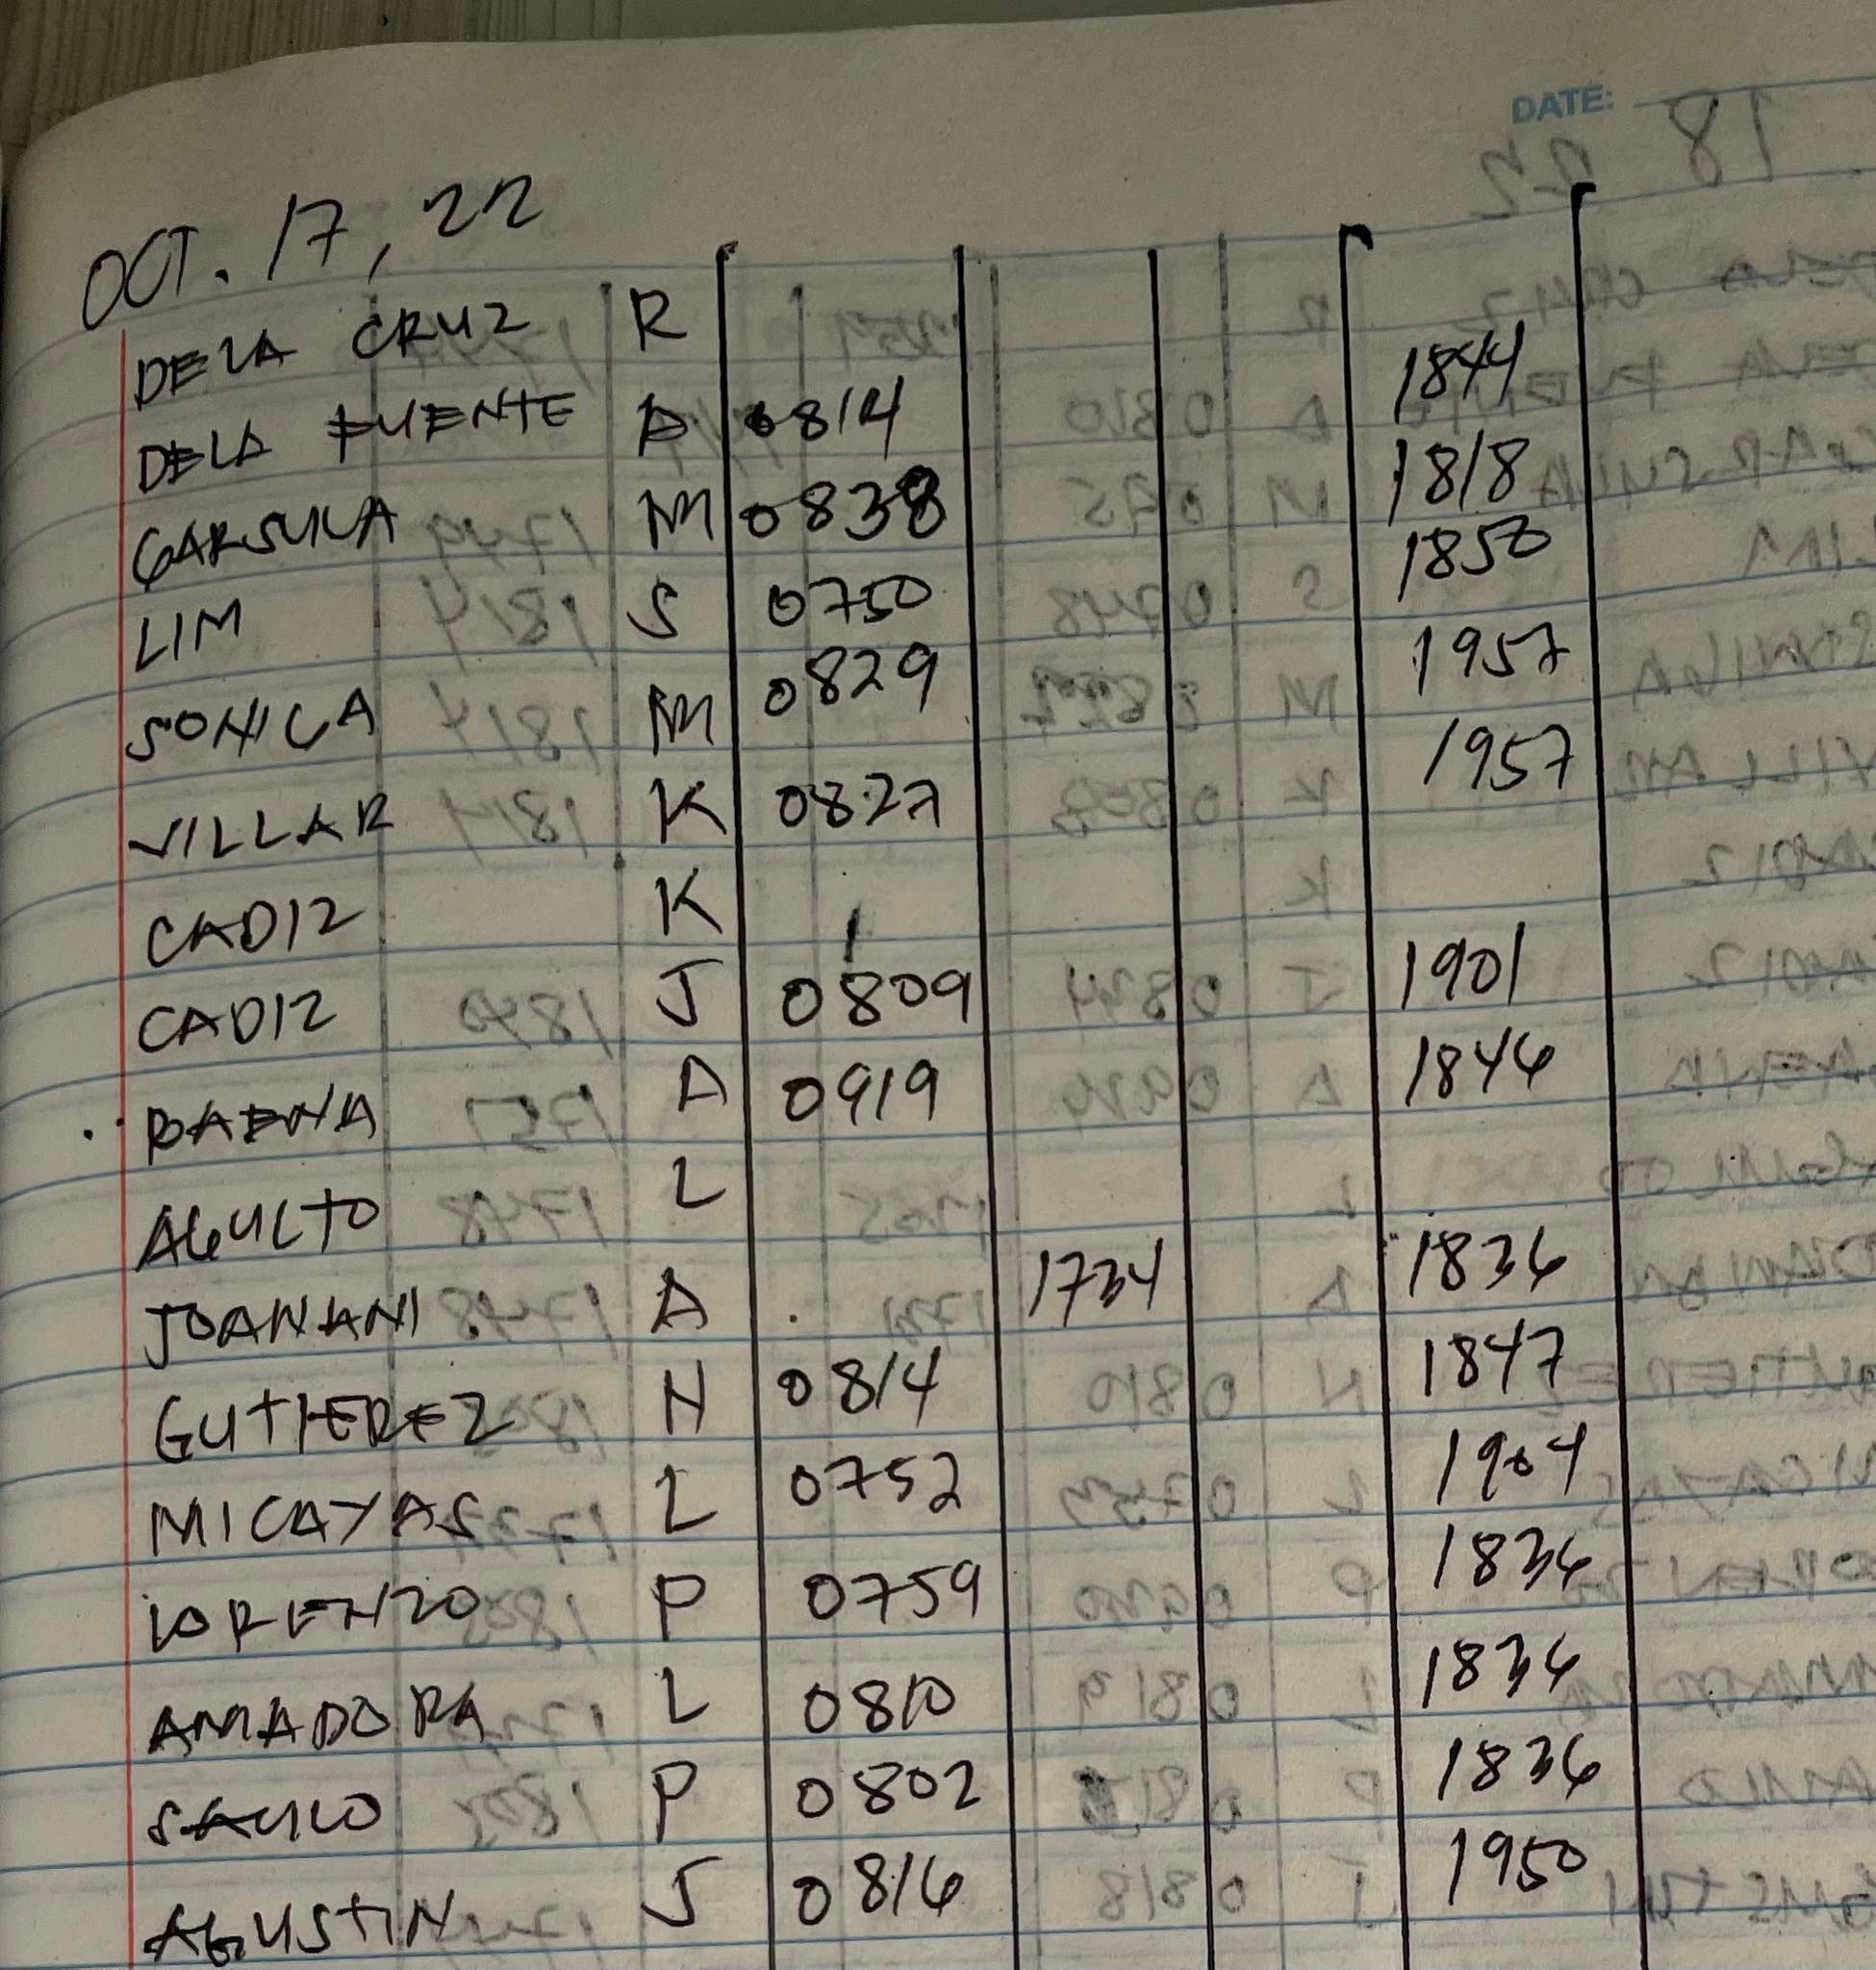 DATE:
OCT. 17, 22
DELA CRUZ R
DELA FUENTE A 0814 1844
GARSULA M 0838 1818
LIM S 0750 1850
SONILA M 0829 1957
VILLAR K 0827 1957
CADIZ K
CADIZ J 0809 1901
BAENA A 0919 1846
AGULTO L
A 1734 1836
GUTIEREZ N 0814 1847
MICAYAS L 0752 1904
LORENZO P 0759 1836
AMADORA L 0810 1836
SAULO P 0802 1836
AGUSTIN J 0816 1950